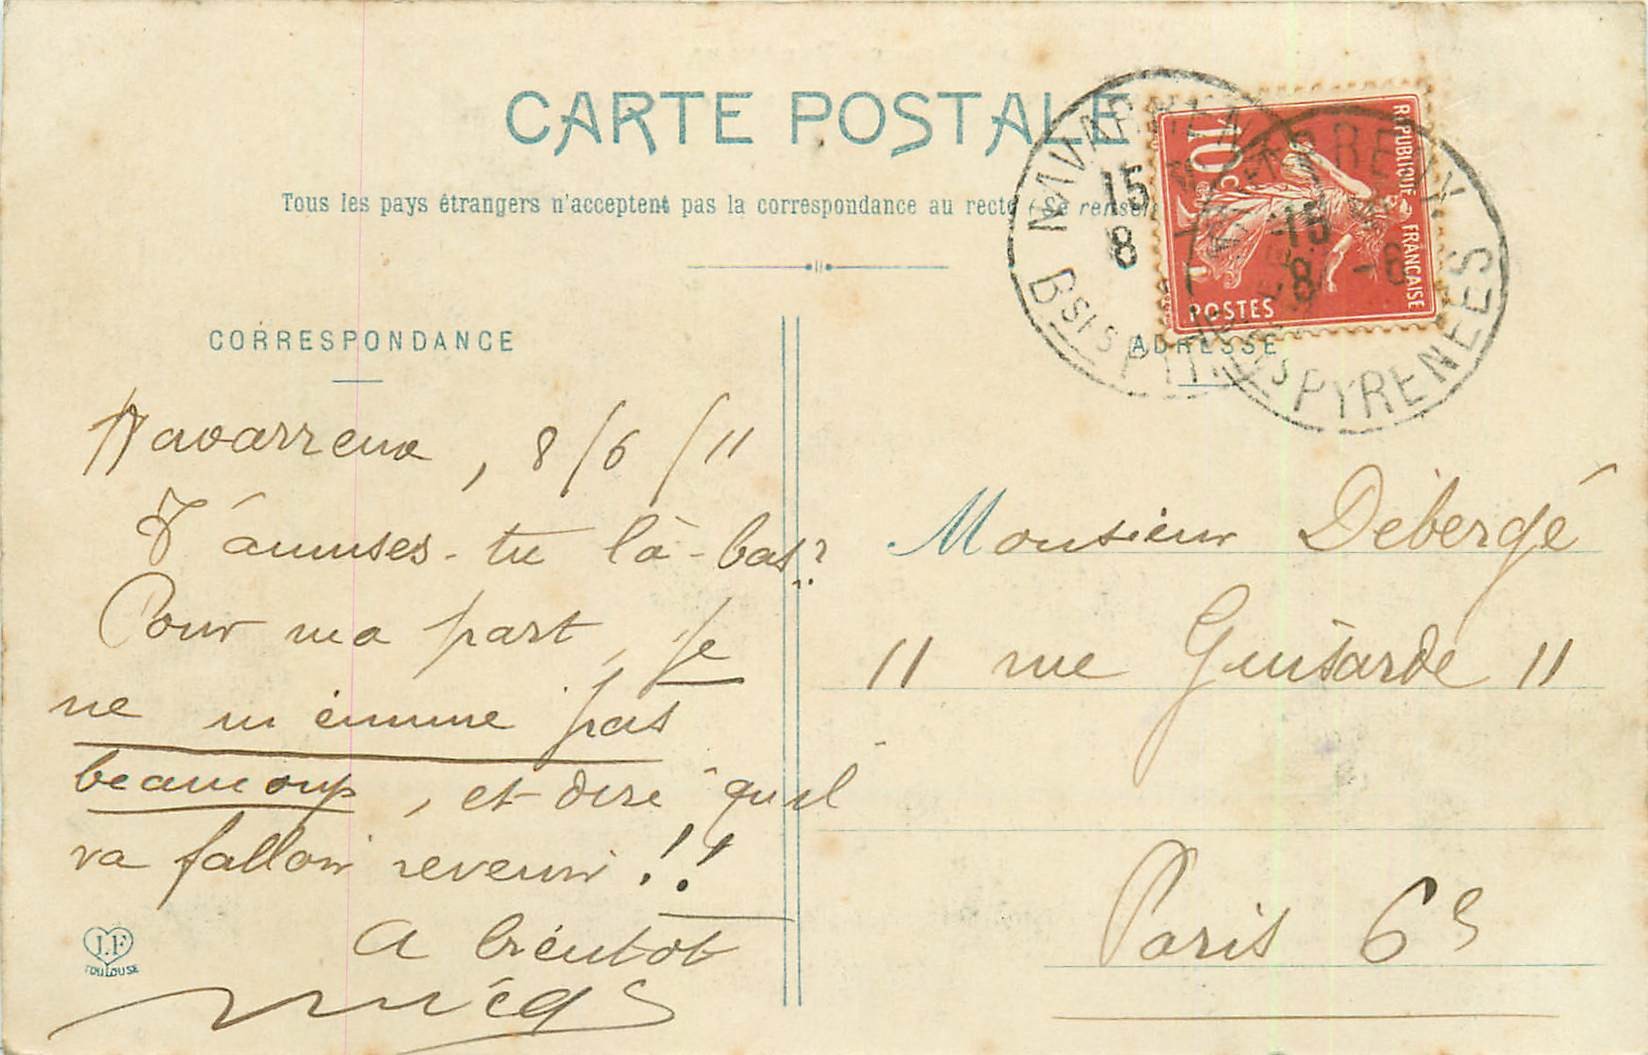 CARTE POSTALE
Tous les pays étrangers n'acceptent pas la correspondance au recto (Se renseig
10c
REPUBLIQUE FRANÇAISE
POSTES
NAVARRENX
15
8
Bses PYR
NAVARRENX
15
8 - 6
Bses PYRENEES
CORRESPONDANCE
ADRESSE
Navarrenx, 8/6/11
T'amuses-tu là-bas?
Pour ma part, je
ne m'ennuie pas
beaucoup, et dire qu'il
va falloir revenir!!
A bientôt
Monsieur Débergé
11 rue Guisarde 11
Paris 6e
J.F
TOULOUSE